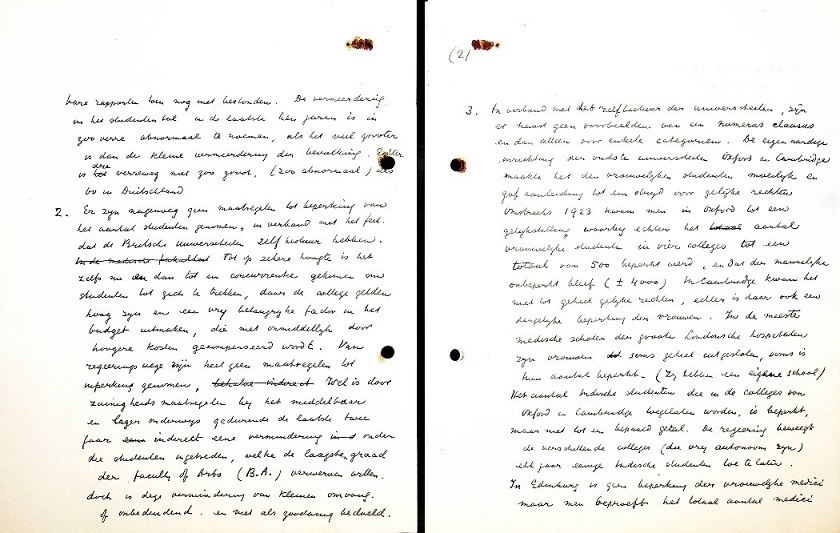 bare rapporten toen nog niet bestonden. De vermeerdering
in het studenten tal in de laatste tien jaren is in
zooverre abnormaal te noemen, als het veel grooter
is dan de kleine vermeerdering der bevolking. Echter
is deze verreweg niet zoo groot, (zoo abnormaal) als
bv in Duitschland
2. Er zijn nagenoeg geen maatregelen tot beperking van
het aantal studenten genomen, in verband met het feit
dat de Britsche Universiteiten zelfbestuur hebben.
Tot op zekere hoogte is het
zelfs nu en dan tot en concurrentie gekomen om
studenten tot zich te trekken, daar de college gelden
hoog zijn en een vrij belangrijke factor in het
budget uitmaken, die niet onmiddellijk door
hoogere kosten gecompenseerd wordt. Van
regeeringswege zijn heel geen maatregelen tot
inperking genomen, Wel is door
zuinigheids maatregelen bij het middelbaar
en lager onderwijs gedurende de laatste twee
jaar indirekt eene vermindering onder
die studenten ingetreden, welke de laagsten graad
der faculty of Arts (B.A.) verwerven willen.
doch is deze vermindering van kleinen omvang.
of onbeduidend. en niet als zoodanig bedoeld.
(2)
3. In verband met het zelfbestuur der universiteiten, zijn
er haast geen voorbeelden van een numerus clausus
en dan alleen voor enkele categorieen. De eigenaardige
inrichting der oudste universiteiten Oxford en Cambridge
maakte het den vrouwelijken studenten moeilijk en
gaf aanleiding tot een strijd voor gelijke rechten
Omstreeks 1923 kwam men in Oxford tot een
gelijkstelling waarbij echter het aantal
vrouwelijke studenten in vier colleges tot een
totaal van 500 beperkt werd, en dat der mannelijke
onbeperkt bleef (± 4000) In Cambridge kwam het
niet tot geheel gelijke rechten, echter is daar ook een
dergelijke beperking der vrouwen. In de meeste
medische scholen der groote Londensche hospitalen
zijn vrouwen soms geheel uitgesloten, soms is
hun aantal beperkt. (Zij hebben een eigene school)
Het aantal Indische studenten die in de colleges van
Oxford en Cambridge toegelaten worden, is beperkt,
maar niet tot een bepaald getal. De regeering beweegt
de verschillende colleges (die vrij autonoom zijn)
elk jaar eenige Indische studenten toe te laten.
In Edinburg is geen beperking der vrouwelijke medici
maar men beproeft het totaal aantal medici